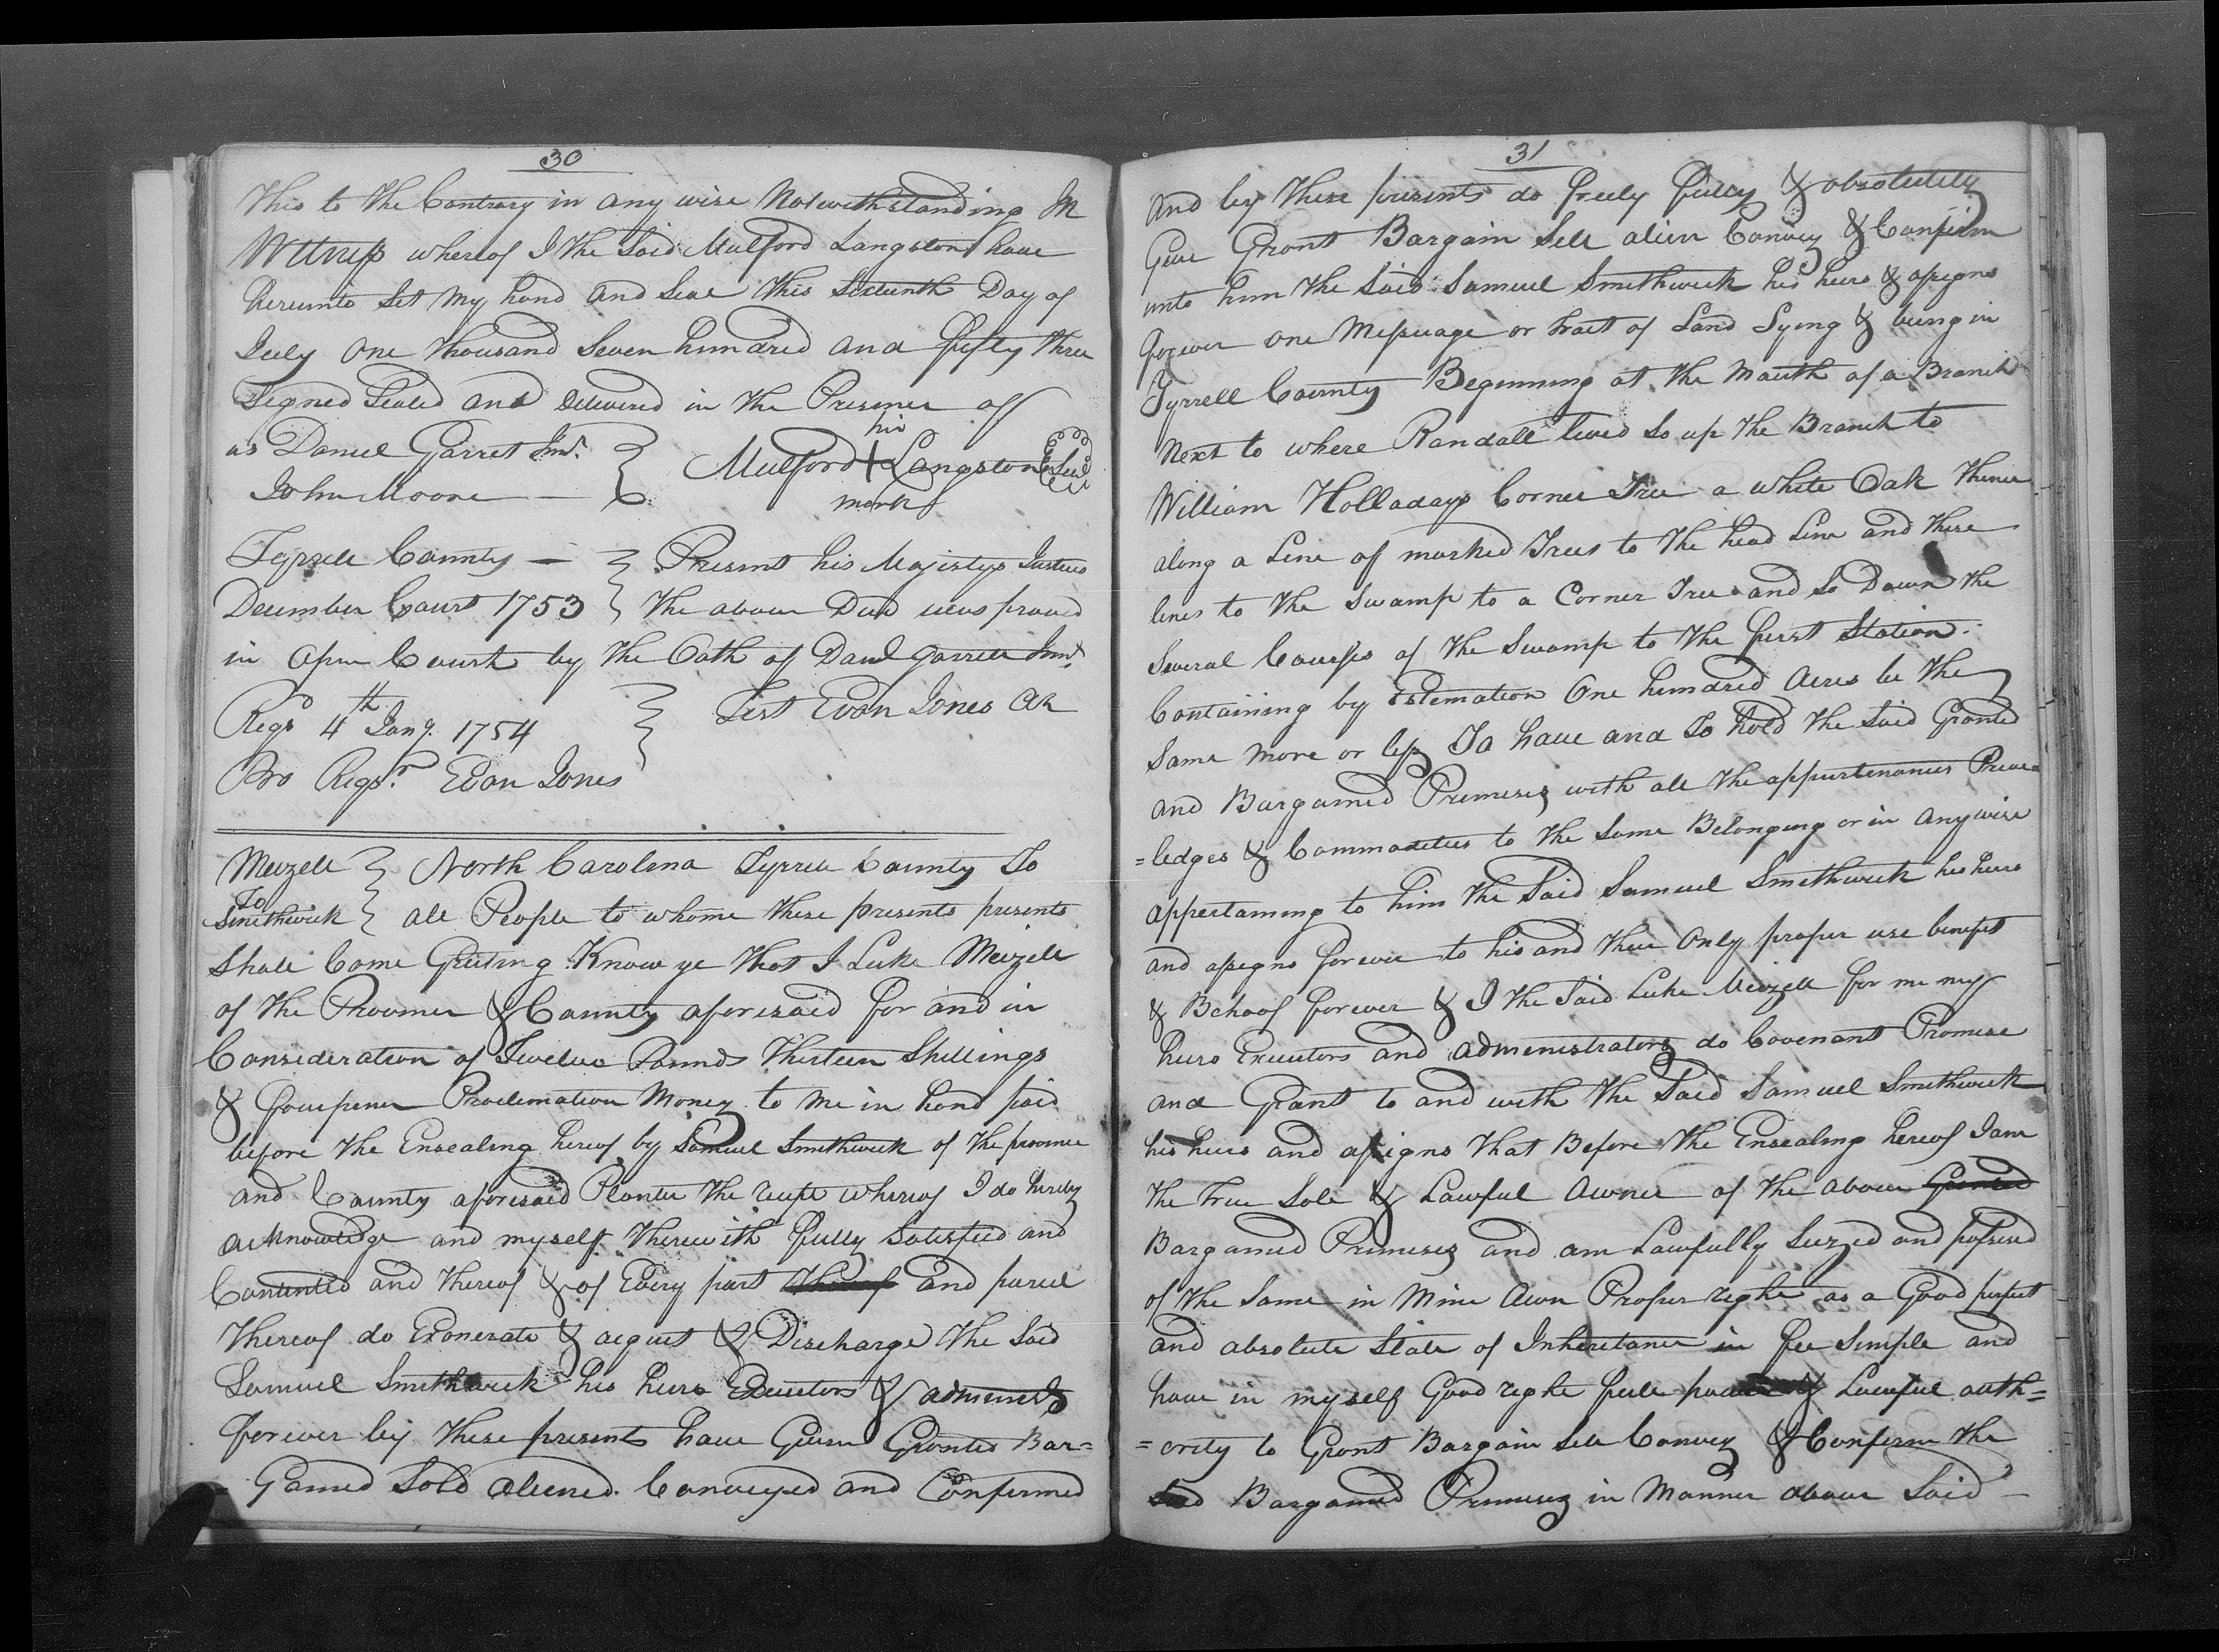 30
This to the Contrary in any wise Notwithstanding In
Wittness whereof I the Said Mulford Langston have
hereunto Set my hand and Seal this Sixteenth Day of
July One thousand Seven hundred and fifty three
Signed Sealed and Delivered in the Presence off
us Daniel Garret Junr.
John Moore —
his
Mulford + Langston Seal
mark
Tyrrell County —
December Court 1753
Present his Majestys Justices
the above Deed was proved
in Open Court by the Oath of Danl Garrett Junr.
Regd 4th Jany. 1754
Test Evan Jones Clk
Pro Regr. Evan Jones
Meizell
To
Smithwick
North Carolina Tyrrell County To
all People to whome these presents presents
Shall Come Greeting Know ye that I Luke Meizell
of the Province & County aforesaid for and in
Consideration of Twelve Pounds Thirteen Shillings
& fourpence Proclimation Money to me in hand paid
before the Ensealing hereof by Samuel Smithwick of the province
and County aforesaid Planter the receipt whereof I do hereby
acknowledge and myself therewith fully Satisfied and
Contented and thereof & of Every part thereof and parcel
thereof do Exonerate & acquit & Discharge the Said
Samuel Smithwick his heirs Executors & administs
forever by these presents have Given Granted Bar=
Gained Sold aliened Conveyed and Confirmed
31
and by these presents do freely fully & absolutely
Give Grant Bargain Sell alien Convey & Confirm
unto him the Said Samuel Smithwick his heirs & assigns
forever one Messuage or tract of Land Lying & being in
Tyrrell County Beginning at the Mouth of a Branch
Next to where Randall lived So up the Branch to
William Holladays Corner Tree a white Oak thence
along a Line of marked Trees to the head Line and there
lines to the Swamp to a Corner Tree and So Down the
Several Courses of the Swamp to the first Station.
Containing by Estemation One hundred Acres be the
Same more or less To have and To hold the Said Granted
and Bargained Premeses with all the appurtenances Prive=
=ledges & Commodities to the Same Belonging or in anywise
appertaining to him the Said Samuel Smithwick his heirs
and assigns forever to his and their Only proper use benefit
& Behoof forever & I the Said Luke Meizell for me my
heirs Executors and administrators do Covenant Promise
and Grant to and with the Said Samuel Smithwick
his heirs and assigns that Before the Ensealing hereof I am
the true Sole & Lawful Owner of the above Granted
Bargained Premeses and am Lawfully Seized and possessed
of the Same in Mine Own Proper right as a Good perfect
and absolute State of Inheritance in fee Simple and
have in myself Good right full power & Lawful auth=
=ority to Grant Bargain Sell Convey & Confirm the
Said Bargained Premeses in Manner above Said —